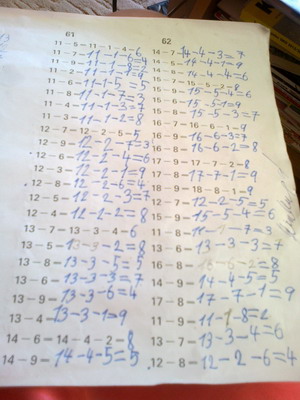 61
11 - 5 = 11 - 1 - 4 = 6
11 - 7 = 11 - 1 - 6 = 4
11 - 9 = 11 - 1 - 8 = 2
11 - 2 = 11 - 1 - 1 = 9
11 - 6 = 11 - 1 - 5 = 5
11 - 8 = 11 - 1 - 7 = 3
11 - 4 = 11 - 1 - 3 = 7
11 - 3 = 11 - 1 - 2 = 8
12 - 7 = 12 - 2 - 5 = 5
12 - 9 = 12 - 2 - 7 = 3
12 - 6 = 12 - 2 - 4 = 6
12 - 3 = 12 - 2 - 1 = 9
12 - 8 = 12 - 2 - 6 = 4
12 - 5 = 12 - 2 - 3 = 7
12 - 4 = 12 - 2 - 2 = 8
13 - 7 = 13 - 3 - 4 = 6
13 - 5 = 13 - 3 - 2 = 8
13 - 8 = 13 - 3 - 5 = 5
13 - 6 = 13 - 3 - 3 = 7
13 - 9 = 13 - 3 - 6 = 4
13 - 4 = 13 - 3 - 1 = 9
14 - 6 = 14 - 4 - 2 = 8
14 - 9 = 14 - 4 - 5 = 5
62
14 - 7 = 14 - 4 - 3 = 7
14 - 5 = 14 - 4 - 1 = 9
14 - 8 = 14 - 4 - 4 = 6
15 - 7 = 15 - 5 - 2 = 8
15 - 9 = 15 - 5 - 4 = 6
15 - 6 = 15 - 5 - 1 = 9
15 - 8 = 15 - 5 - 3 = 7
16 - 7 = 16 - 6 - 1 = 9
16 - 9 = 16 - 6 - 3 = 7
16 - 8 = 16 - 6 - 2 = 8
17 - 9 = 17 - 7 - 2 = 8
17 - 8 = 17 - 7 - 1 = 9
18 - 9 = 18 - 8 - 1 = 9
12 - 7 = 12 - 2 - 5 = 5
15 - 9 = 15 - 5 - 4 = 6
11 - 8 = 11 - 1 - 7 = 3
13 - 6 = 13 - 3 - 3 = 7
16 - 8 = 16 - 6 - 2 = 8
14 - 9 = 14 - 4 - 5 = 5
17 - 8 = 17 - 7 - 1 = 9
11 - 9 = 11 - 1 - 8 = 2
13 - 7 = 13 - 3 - 4 = 6
12 - 8 = 12 - 2 - 6 = 4